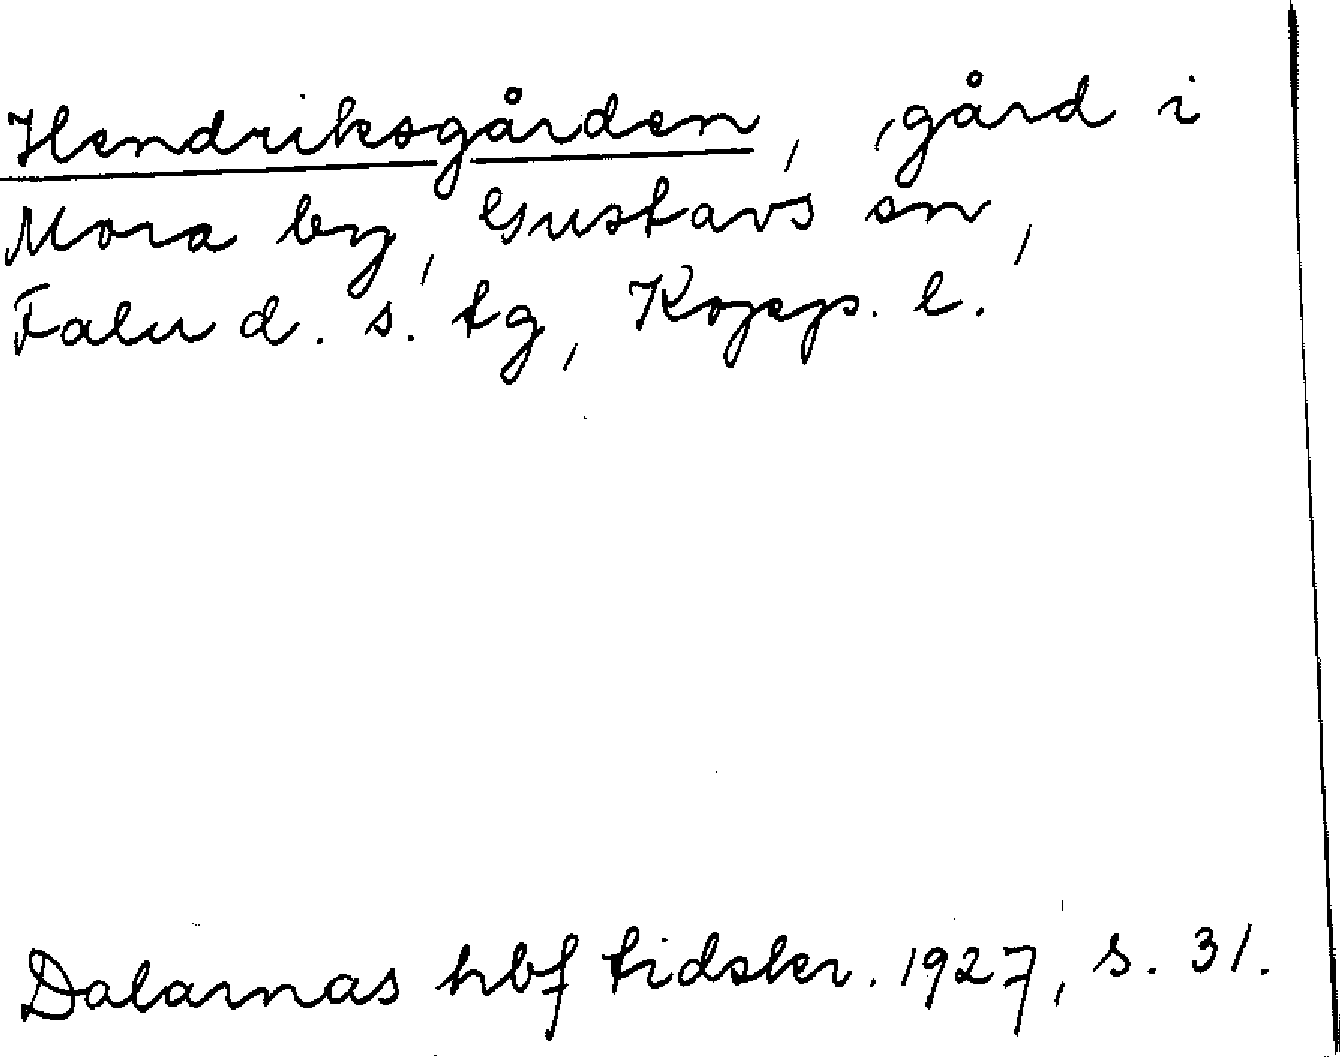 Hendriksgården, gård i
Mora by, Gustavs sn,
Falu d. s. tg, Kopp. l.
Dalarnas hbf tidskr. 1927, s. 31.